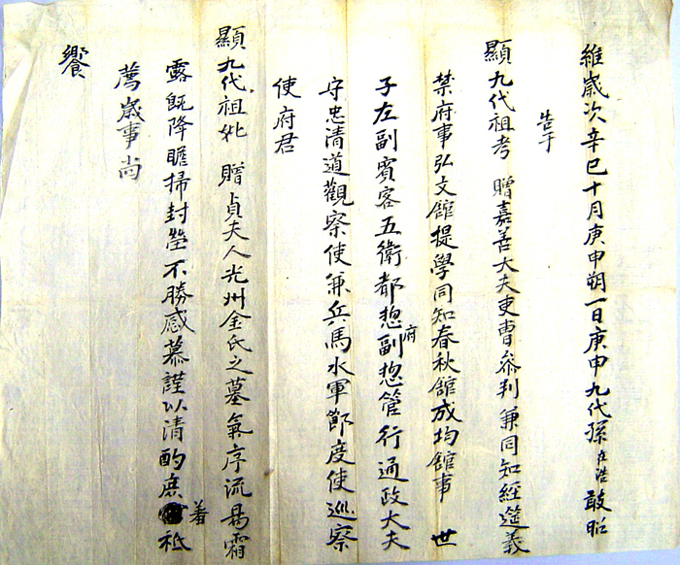 維歲次辛巳十月庚申朔一日庚申九代孫在浩敢昭
告于
顯九代祖考 贈嘉善大夫吏曹參判兼同知經筵義
禁府事弘文館提學同知春秋館成均館事 世
子左副賓客五衛都摠府副摠管行通政大夫
守忠清道觀察使兼兵馬水軍節度使巡察
使府君
顯九代祖妣 贈貞夫人光州金氏之墓氣序流易霜
露旣降瞻掃封塋不勝感慕謹以清酌庶羞祗
薦歲事尚
饗